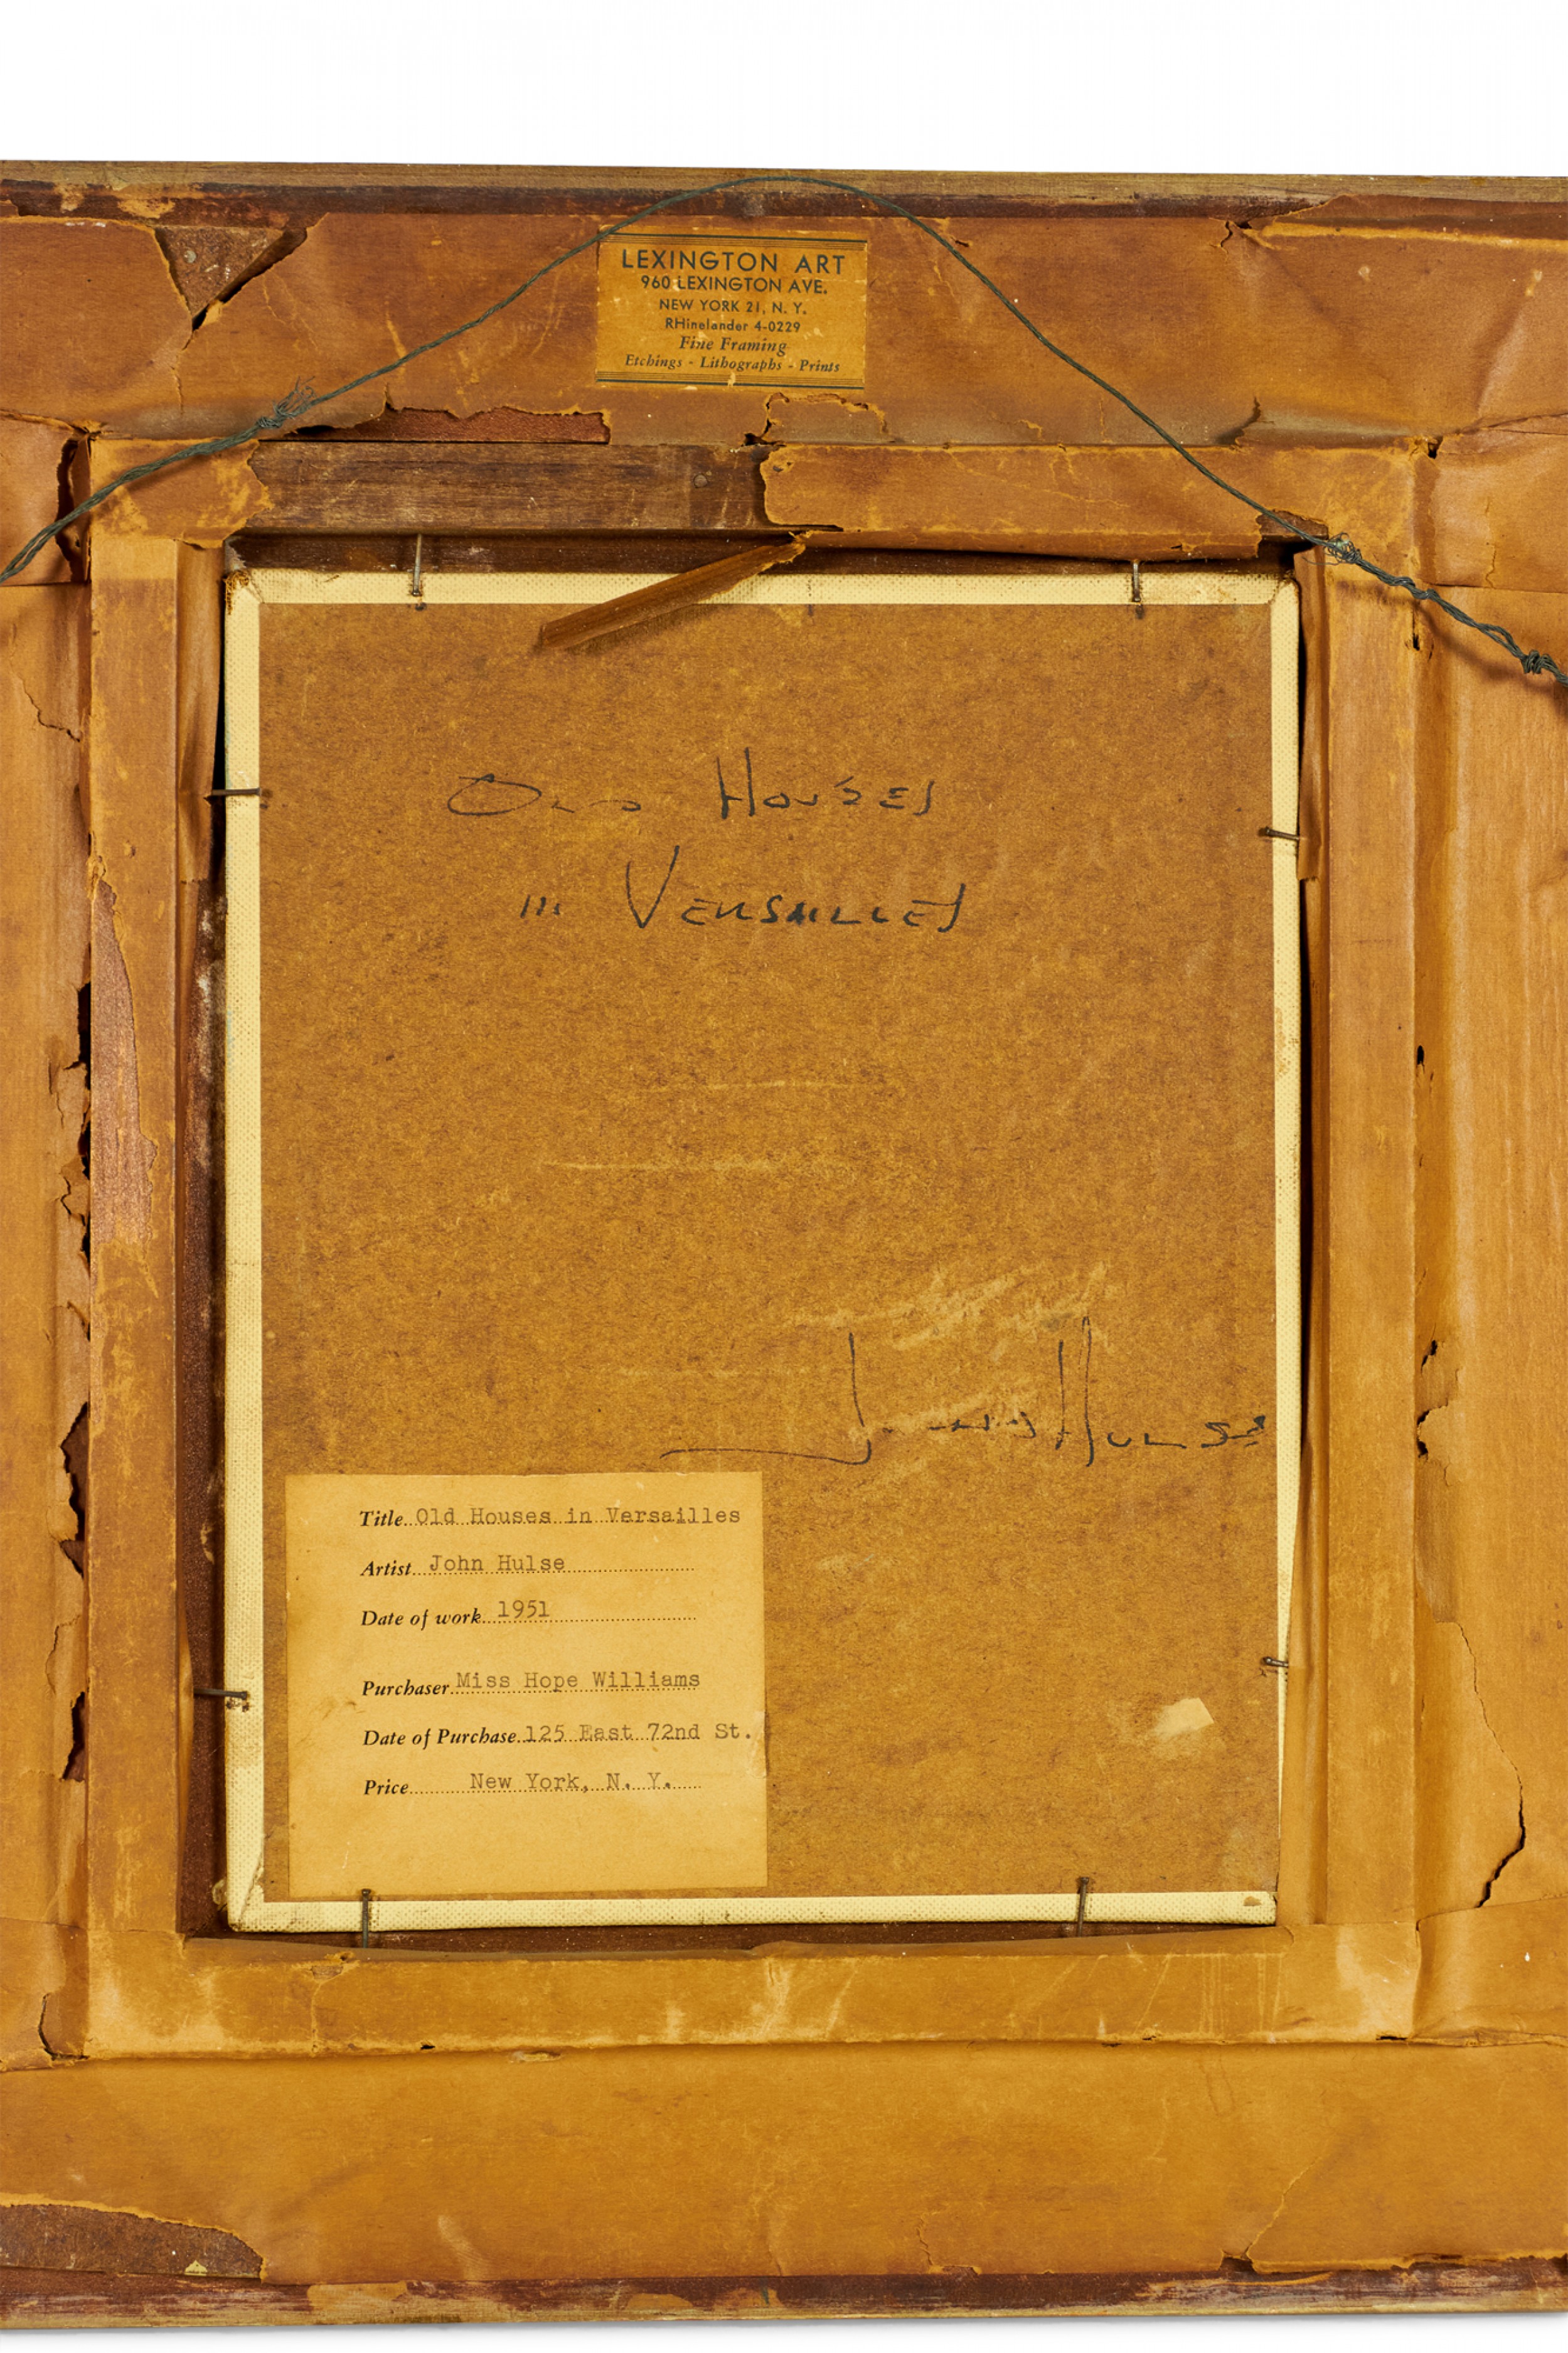 LEXINGTON ART
960 LEXINGTON AVE.
NEW YORK 21, N. Y.
RHinelander 4-0229
Fine Framing
Etchings - Lithographs - Prints
OLD HOUSES
IN VERSAILLES
John HULSE
Title Old Houses in Versailles
Artist John Hulse
Date of work 1951
Purchaser Miss Hope Williams
Date of Purchase 125 East 72nd St.
Price New York, N. Y.